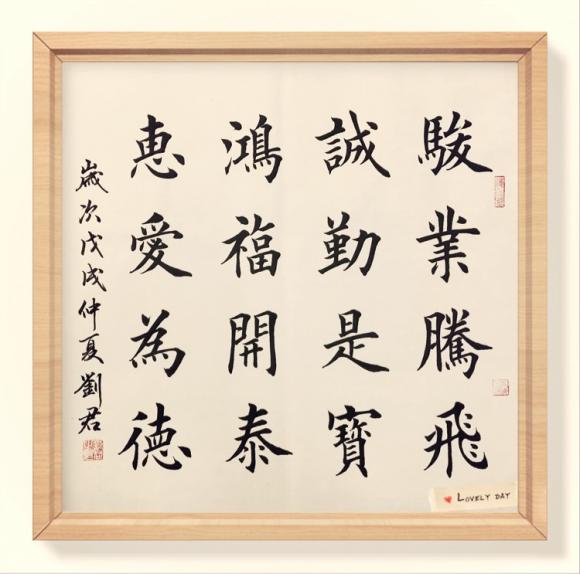 駿業騰飛
誠勤是寶
鴻福開泰
惠愛為德
歲次戊戌仲夏劉君
LOVELY DAY